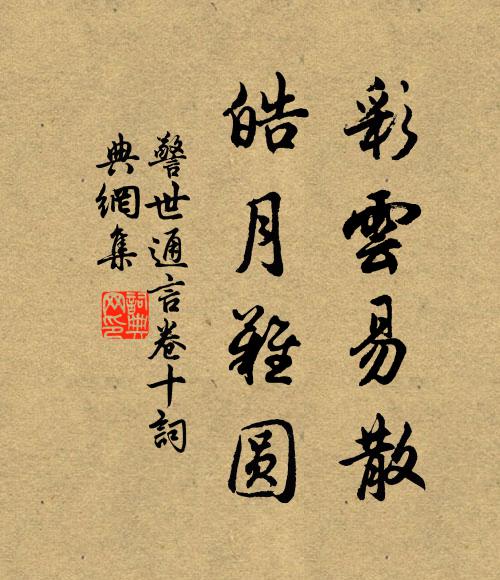 彩雲易散
皓月難圆
警世通言卷十詞
典網集
詞典网印